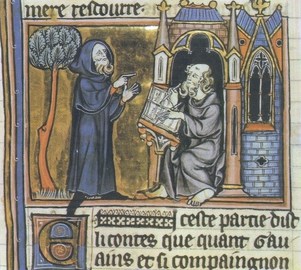 mere
E ceste partie dist
li contes que quant Gau
ains et si compaingnon